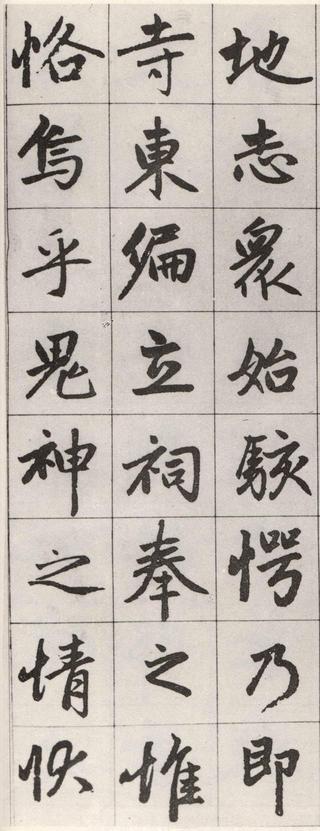 地志衆始駭愕乃即
寺東編立祠奉之惟
恪烏乎鬼神之情状